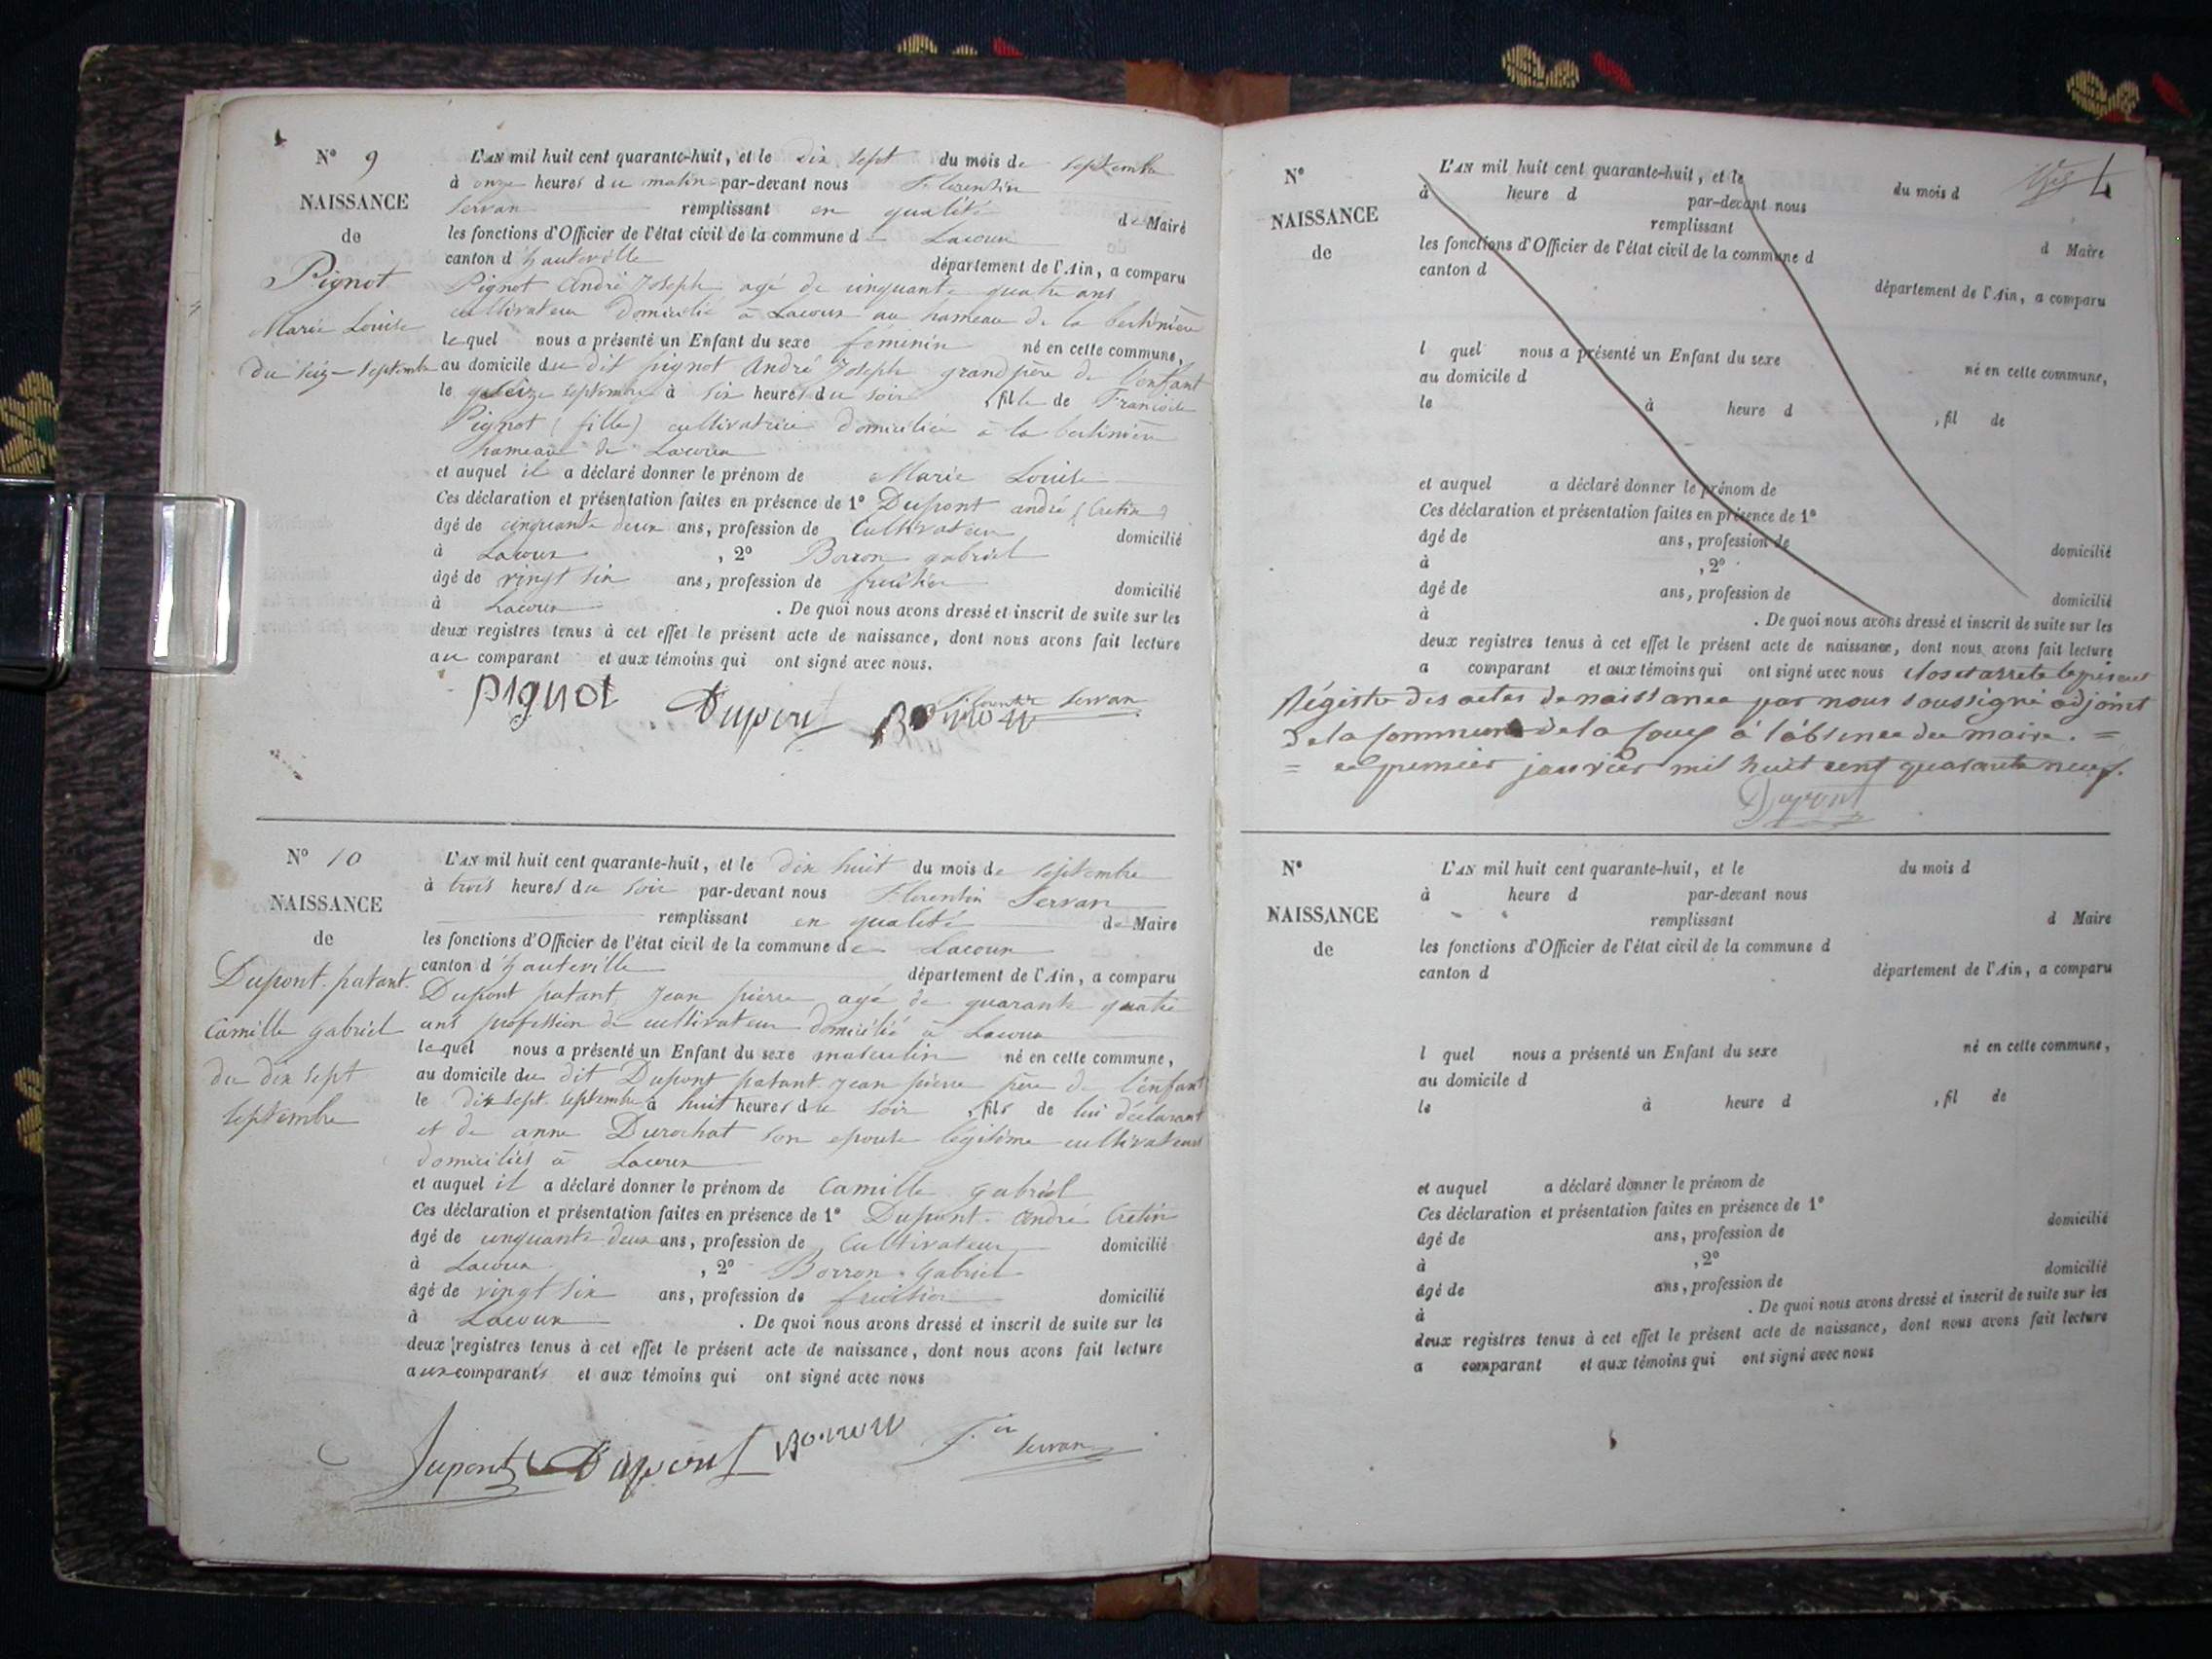 N° 9
NAISSANCE
de
Pignot
Marie Louise
du seize septembre
L'AN mil huit cent quarante-huit, et le dix sept du mois de septembre
à onze heures du matin par-devant nous Florentin
Servan remplissant en qualité de Maire
les fonctions d'Officier de l'état civil de la commune d Lacoux
canton d'hauteville département de l'Ain, a comparu
Pignot André Joseph agé de cinquante quatre ans
cultivateur domicilié à Lacoux au hameau de la bertinière
lequel nous a présenté un Enfant du sexe féminin né en cette commune,
au domicile du dit pignot André Joseph grand père de l'enfant
le seize septembre à six heures du soir , fille de Francoise
Pignot (fille) cultivatrice domiciliée à la bertinière
hameau de Lacoux
et auquel il a déclaré donner le prénom de Marie Louise
Ces déclaration et présentation faites en présence de 1° Dupont andré (Cretin)
âgé de cinquante deux ans, profession de Cultivateur domicilié
à Lacoux , 2° Borron gabriel
âgé de vingt six ans, profession de fruitier domicilié
à Lacoux . De quoi nous avons dressé et inscrit de suite sur les
deux registres tenus à cet effet le présent acte de naissance, dont nous avons fait lecture
au comparant et aux témoins qui ont signé avec nous.
pignot Dupont Borron Florentin Servan
N° 10
NAISSANCE
de
Dupont patant.
Camille gabriel
du dix sept
septembre
L'AN mil huit cent quarante-huit, et le dix huit du mois de septembre
à trois heures du soir par-devant nous Florentin Servan
remplissant en qualité de Maire
les fonctions d'Officier de l'état civil de la commune de Lacoux
canton d'hauteville département de l'Ain, a comparu
Dupont patant Jean pierre agé de quarante quatre
ans profession de cultivateur domicilié à Lacoux
lequel nous a présenté un Enfant du sexe masculin né en cette commune,
au domicile du dit Dupont patant Jean pierre père de l'enfant
le dix sept septembre à huit heures du soir , fils de lui déclarant
et de anne Durochat son epouse légitime cultivateurs
domiciliés à Lacoux
et auquel il a déclaré donner le prénom de Camille gabriel
Ces déclaration et présentation faites en présence de 1° Dupont André Cretin
âgé de cinquante deux ans, profession de Cultivateur domicilié
à Lacoux , 2° Borron Gabriel
âgé de vingt six ans, profession de fruitier domicilié
à Lacoux . De quoi nous avons dressé et inscrit de suite sur les
deux registres tenus à cet effet le présent acte de naissance, dont nous avons fait lecture
aux comparants et aux témoins qui ont signé avec nous
Dupont Dupont Borron F. in Servan
N°
NAISSANCE
de
L'AN mil huit cent quarante-huit, et le du mois d
à heure d par-devant nous
remplissant d Maire
les fonctions d'Officier de l'état civil de la commune d
canton d département de l'Ain, a comparu
l quel nous a présenté un Enfant du sexe né en cette commune,
au domicile d
le à heure d , fil de
et auquel a déclaré donner le prénom de
Ces déclaration et présentation faites en présence de 1°
âgé de ans, profession de domicilié
à , 2°
âgé de ans, profession de domicilié
à . De quoi nous avons dressé et inscrit de suite sur les
deux registres tenus à cet effet le présent acte de naissance, dont nous avons fait lecture
a comparant et aux témoins qui ont signé avec nous Clos et arrete le présent
Régistre des actes de naissance par nous soussigné adjoint
de la Commune de la Coux à l'absence du maire. =
= ce premier janvier mil huit cent quarante neuf.
Dupont
N°
NAISSANCE
de
L'AN mil huit cent quarante-huit, et le du mois d
à heure d par-devant nous
remplissant d Maire
les fonctions d'Officier de l'état civil de la commune d
canton d département de l'Ain, a comparu
l quel nous a présenté un Enfant du sexe né en cette commune,
au domicile d
le à heure d , fil de
et auquel a déclaré donner le prénom de
Ces déclaration et présentation faites en présence de 1°
âgé de ans, profession de domicilié
à , 2°
âgé de ans, profession de domicilié
à . De quoi nous avons dressé et inscrit de suite sur les
deux registres tenus à cet effet le présent acte de naissance, dont nous avons fait lecture
a comparant et aux témoins qui ont signé avec nous